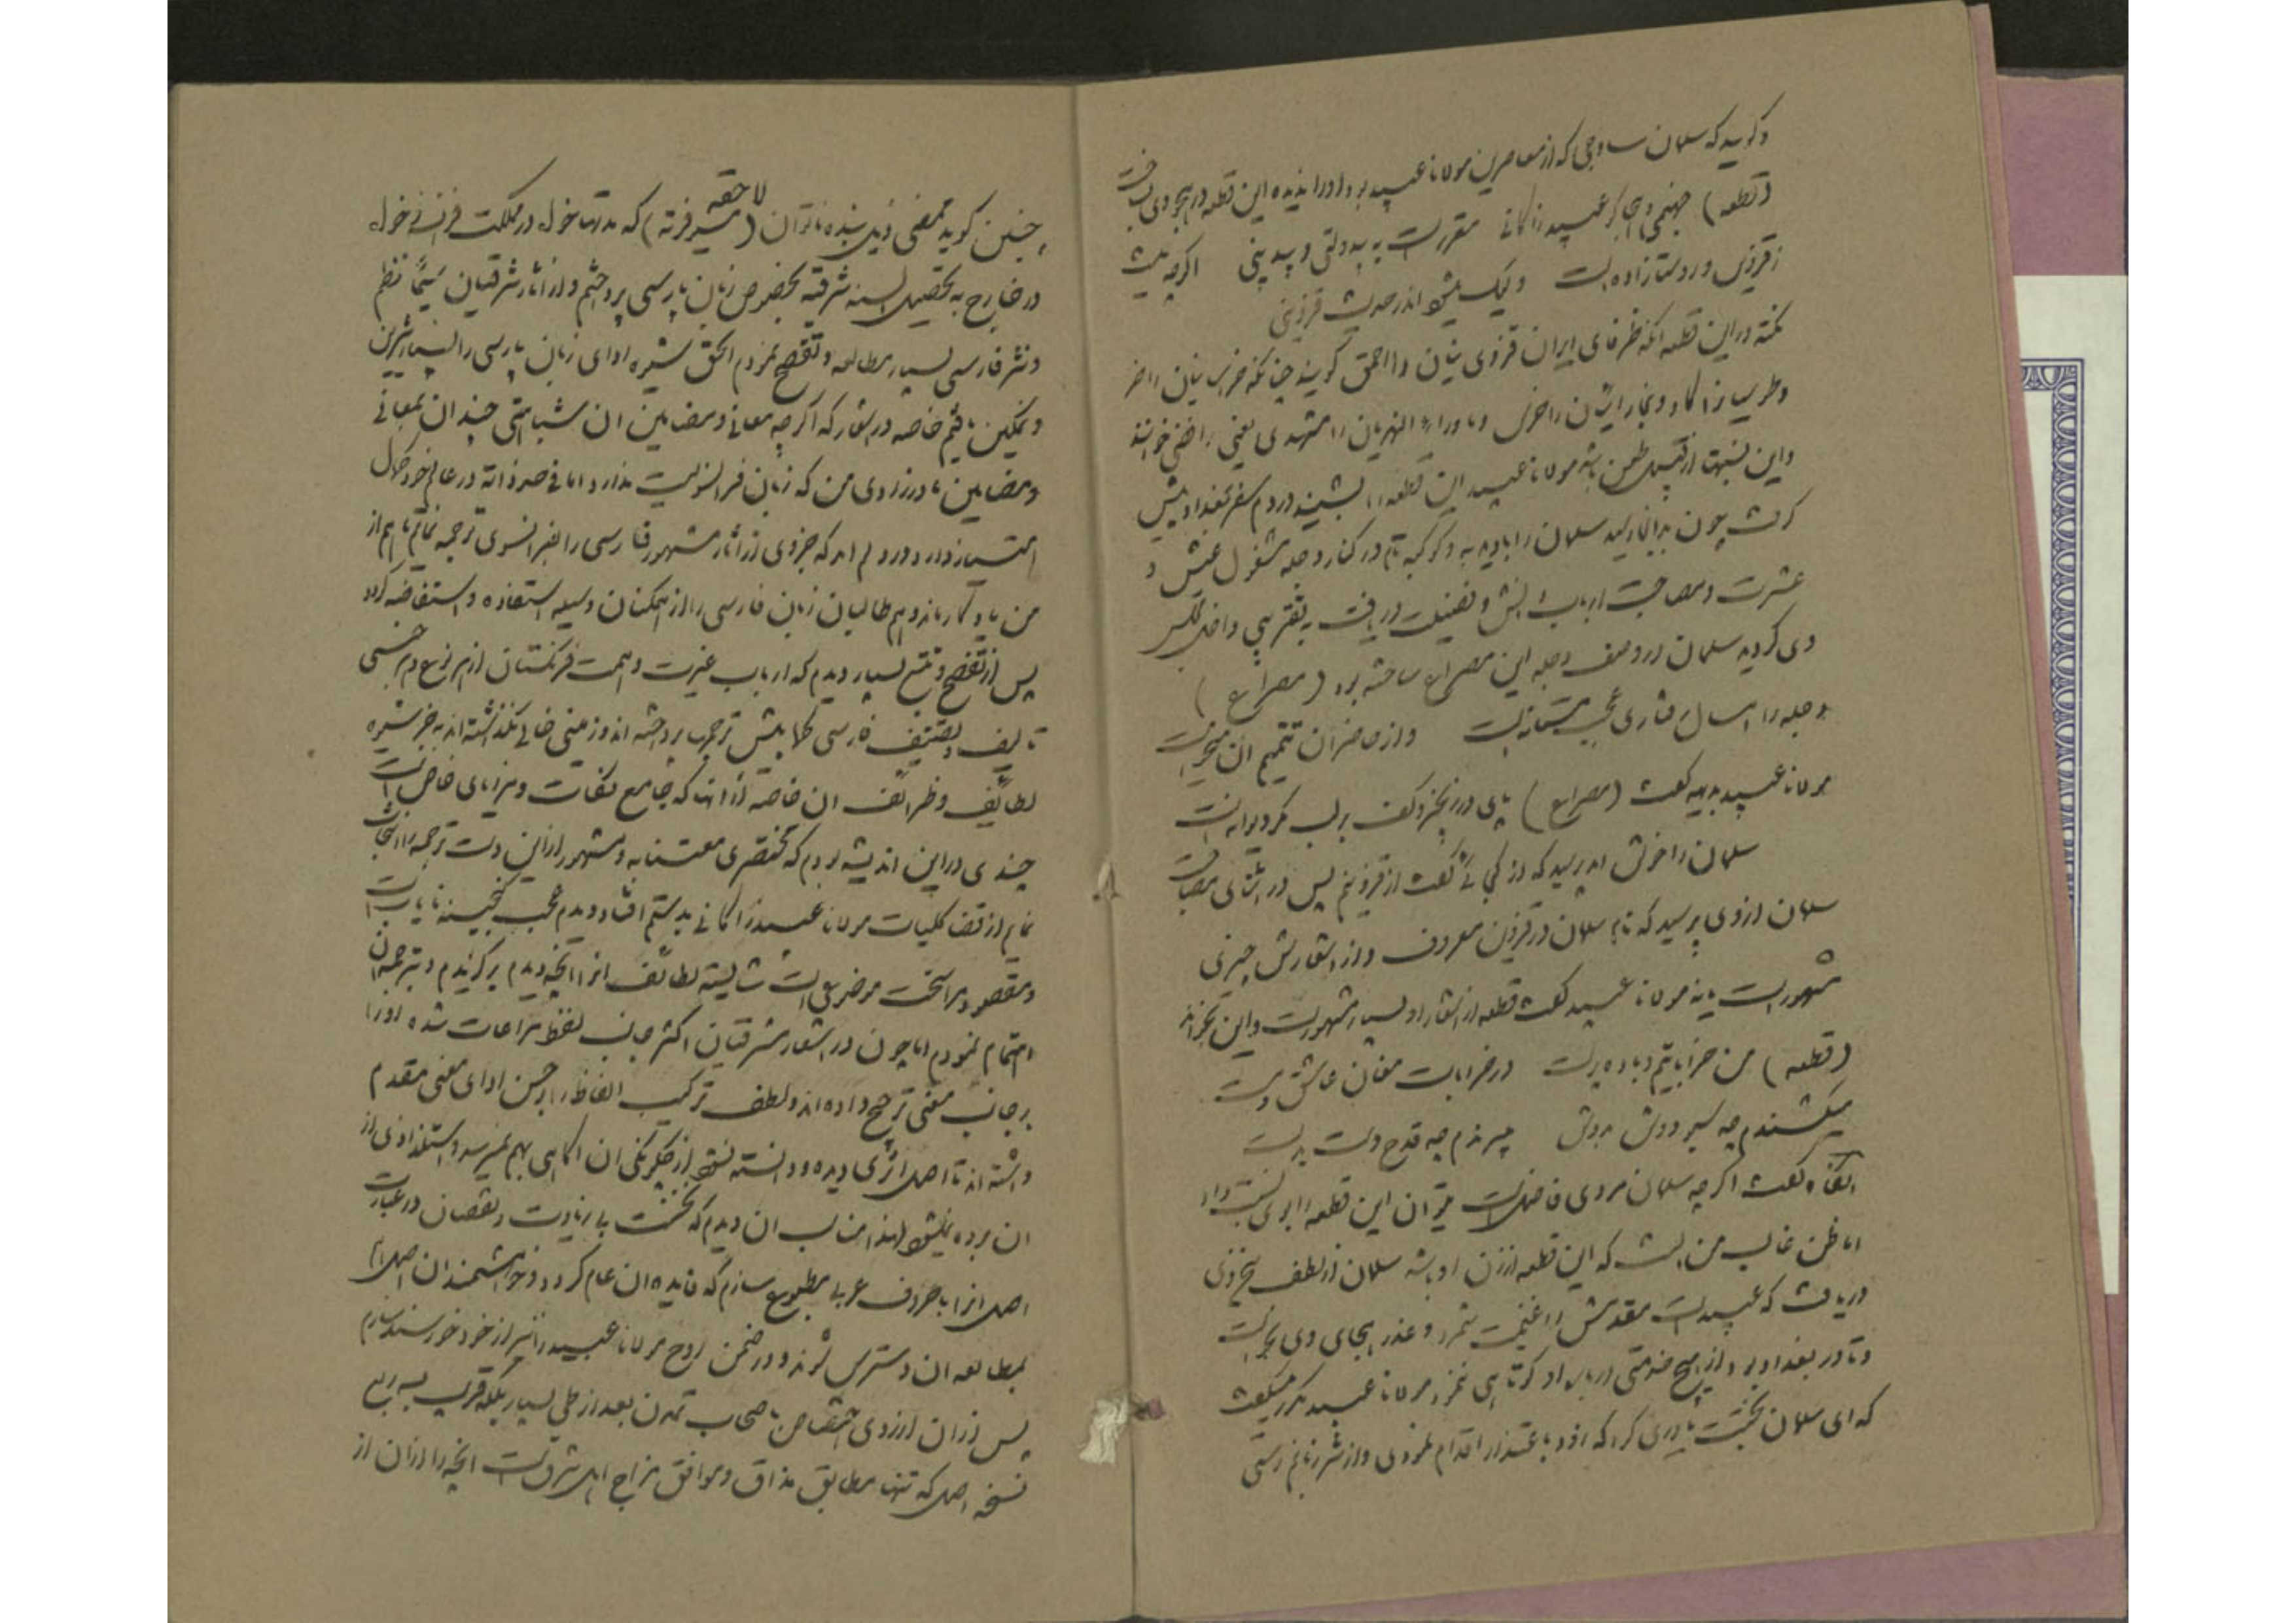 و گویند که سلمان ساوجی که از معاصرین مولانا عبید بود او را ندیده این قطعه در هجو وی ساخت
(قطعه) جهنمی و هجاگو عبید زاکانی مقررست به بیدولتی و بیدینی اگرچه نیست
ز قزوین و روستازاده است ولیک میشود اندر حدیث قزوینی
نکته در این قطعه آنکه ظرفای ایران قزوینیان را احمق گویند چنانکه خراسانیان را خر
و طوسیان را گاو و بخارائیان را خرس و ماوراء النهریان را مشهدی یعنی رافضی خوانند
و این نسبت از قبیل طعن باشد مولانا عبید این قطعه را بشنید در دم سفر بغداد پیش
گرفت چون بدانجا رسید سلمان را با دبدبه و کوکبه تام در کنار دجله مشغول عیش و
عشرت و مصاحبت ارباب دانش و فضیلت دریافت به تقریبی داخل مجلس
وی گردید سلمان در وصف دجله این مصراع ساخته بود (مصراع)
دجله را امسال رفتاری عجب مستانه است و از حاضران تتمیم آن میخواست
مولانا عبید بدیهه گفت (مصراع) پای در زنجیر و کف بر لب مگر دیوانه است
سلمان را خوش آمد پرسید که از کجائی گفت از قزوینم پس در اثنای مصاحبت
سلمان از وی پرسید که نام سلمان در قزوین معروف و از اشعارش چیزی
مشهور است یا نه مولانا عبید گفت قطعه از اشعار او بسیار مشهور است و این بخواند
(قطعه) من خراباتیم و باده پرست در خرابات مغان عاشق و مست
میکشندم چه سبو دوش بدوش میبرندم چه قدح دست بدست
آنگاه گفت اگرچه سلمان مردی فاضل است میتوان این قطعه را بوی نسبت داد
اما ظن غالب من آنست که این قطعه از زن او باشد سلمان از لطف سخن وی
دریافت که عبید است مقدمش را غنیمت شمرد و عذر هجای وی بخواست
و تا در بغداد بود از هیچ خدمتی درباره او کوتاهی ننمود مولانا عبید مکرر میگفت
که ای سلمان بختت یاوری کرد که زود باعتذار اقدام نمودی و از شر زبانم رستی
چنین گوید ممضی ذیل بنده ناتوان (مسیو فرته) که مدتها خواه در مملکت فرانسه خواه
لاحقه
در خارج به تحصیل السنه شرقیه بخصوص زبان پارسی پرداختم و از آثار شرقیان سیّما نظم
و نثر فارسی بسیار مطالعه و تفحص نمودم الحق شیوه ادای زبان پارسی را بسیار شیرین
و نمکین یافتم خاصه در اشعار که اگرچه معانی و مضامین آن شباهتی چندان بمعانی
و مضامین مادرزادی من که زبان فرانسویست ندارد اما فی حد ذاته در عالم خود کمال
امتیاز دارد و در دلم آمد که جزوی از آثار مشهور فارسی را بفرانسوی ترجمه نمایم تا هم از
من یادگار ماند و هم طالبان زبان فارسی را از همکنان وسیله استفاده و استفاضه گردد
پس از تفحص و تتبع بسیار دیدم که ارباب غیرت و همت فرنگستان از هر نوع و هر جنسی
تألیف و تصنیف فارسی کمابیش ترجمها پرداخته اند و زمینی خالی نگذاشته اند به جز شیوه
لطائف و ظرائف آن خاصه از آنها که جامع نکات و مزایای خاص است
چندی در این اندیشه بودم که مختصری معتنابه و مشهور از این دست ترجمه را انتخاب
نمایم از قضا کلیات مولانا عبید زاکانی بدستم افتاد دیدم عجب گنجینه نایاب است
و مقصود مرا سخت موضوعی است شایسته لطائف آنرا آنچه دیدم برگزیدم و بترجمه آن
اهتمام نمودم اما چون در اشعار شرقیان اکثر جانب لفظ مراعات شده او را
بر جانب معنی ترجیح داده اند و لطف ترکیب الفاظ را بر حسن ادای معنی مقدم
داشته اند تا اصل اثری دیده و دانسته نشود از چگونگی آن آگاهی بهم نمیرسد و استلذاذی از
آن برده نمیشود لهذا مناسب آن دیدم که نخست بی زیادت و نقصان در عبارت
اصل آنرا با حروف عربی مطبوع سازم که فایده آن عام گردد و خواهشمندان اصل را
بمطالعه آن دسترس شوند و در ضمن روح مولانا عبید را نیز از خود خورسند سازم
پس از آن آرزوی اشخاص صاحب تمدن بعد از طی بسیار بلکه قریب به ربع
نسخه اصل که تنها مطابق مذاق و موافق مزاج اهل شرق است آنچه را از آن از